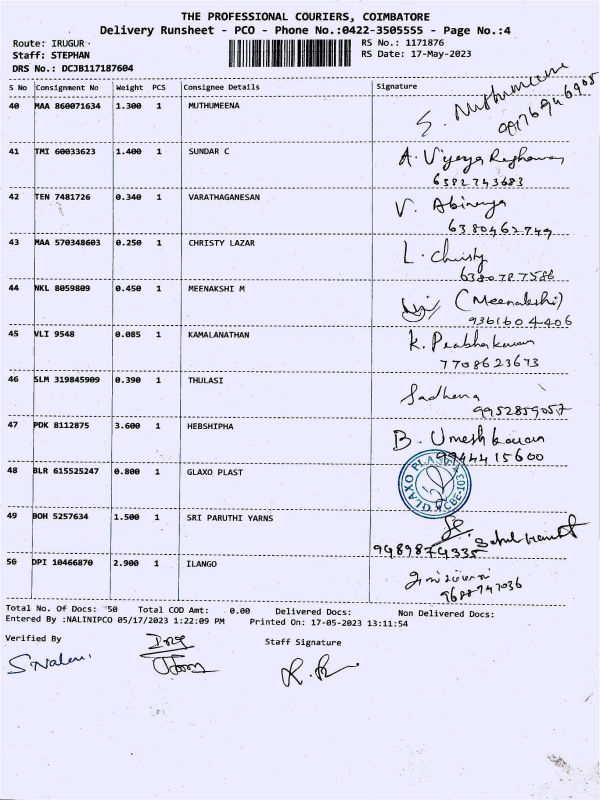 THE PROFESSIONAL COURIERS, COIMBATORE
Delivery Runsheet - PCO - Phone No.:0422-3505555 - Page No.:4
Route: IRUGUR
RS No.: 1171876
Staff: STEPHAN
RS Date: 17-May-2023
DRS No.: DCJB117187604
S No Consignment No Weight PCS Consignee Details Signature
40 MAA 860071634 1.300 1 MUTHUMEENA S. Muthumeena
41 TMI 60033623 1.400 1 SUNDAR C A. Vijaya Raghavan
6382743683
42 TEN 7481726 0.340 1 VARATHAGANESAN V. Abinaya
6380462749
43 MAA 570348603 0.250 1 CHRISTY LAZAR L. Christy
6380787586
44 NKL 8059809 0.450 1 MEENAKSHI M (Meenakshi)
9361604406
45 VLI 9548 0.085 1 KAMALANATHAN K. Prabhakaran
7708623673
46 SLM 319845909 0.390 1 THULASI Sadhana
9952859057
47 PDK 8112875 3.600 1 HEBSHIPHA B. Umesh kumar
9944415600
48 BLR 615525247 0.800 1 GLAXO PLAST GLAXO PLAST CBE-103
49 BOH 5257634 1.500 1 SRI PARUTHI YARNS
9489874335
50 DPI 10466870 2.900 1 ILANGO
9688747036
Total No. Of Docs: 50 Total COD Amt: 0.00 Delivered Docs: Non Delivered Docs:
Entered By :NALINIPCO 05/17/2023 1:22:09 PM Printed On: 17-05-2023 13:11:54
Verified By Staff Signature
S.Nalini